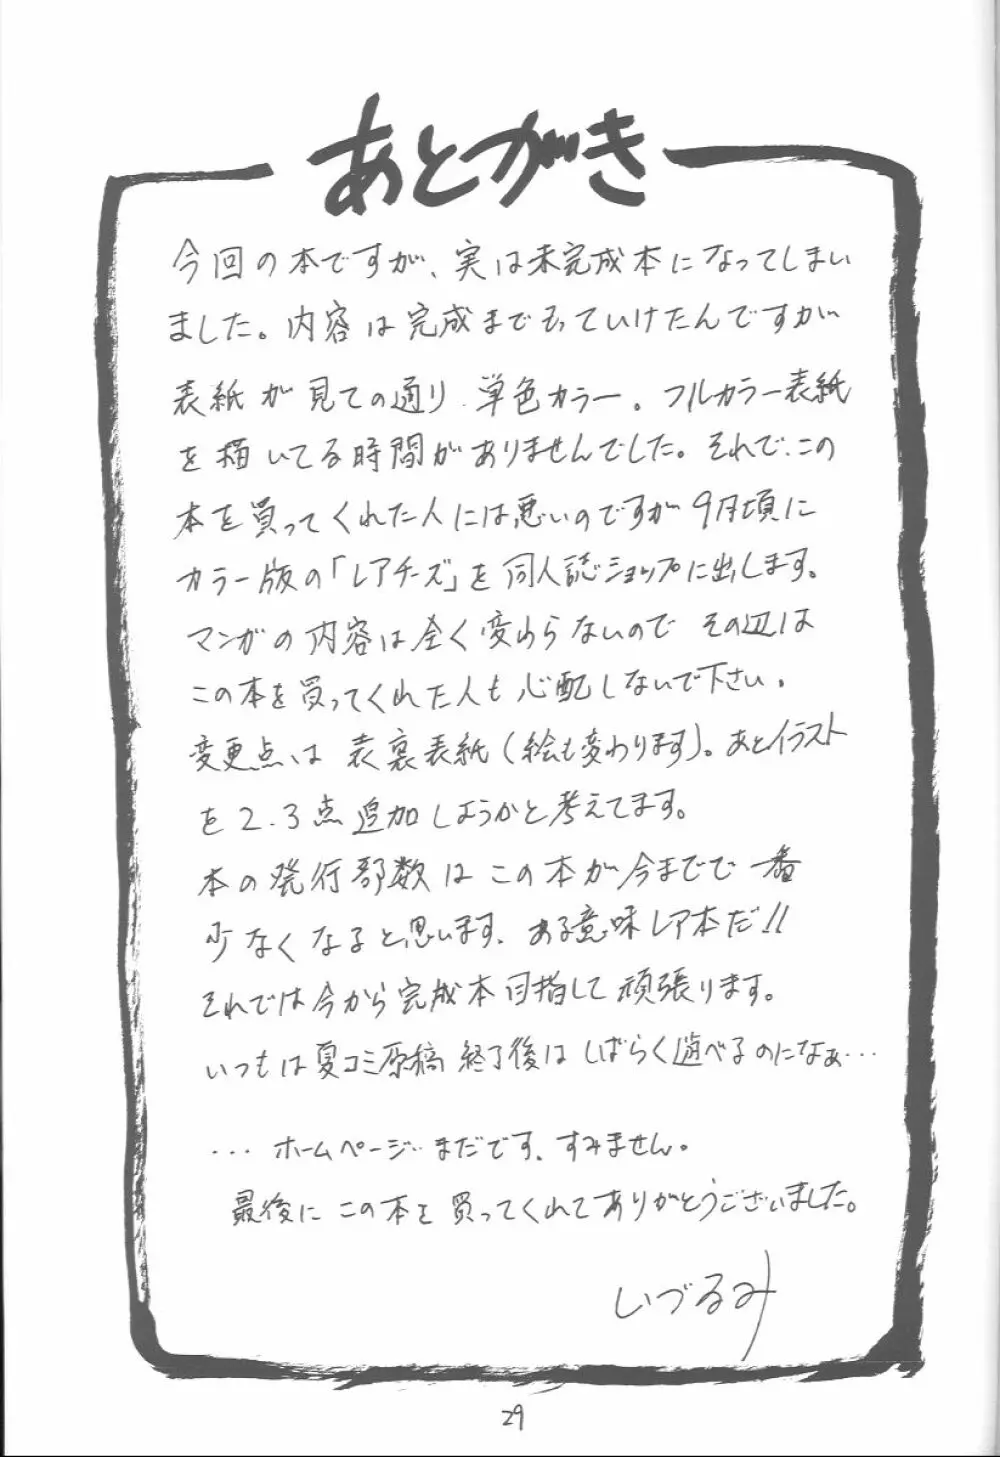 あとがき
今回の本ですが、実は未完成本になってしまい
ました。内容は完成までもっていけたんですが
表紙が見ての通り、単色カラー。フルカラー表紙
を描いてる時間がありませんでした。それで、この
本を買ってくれた人には悪いのですが9月頃に
カラー版の「レアチーズ」を同人誌ショップに出します。
マンガの内容は全く変わらないので その辺は
この本を買ってくれた人も心配しないで下さい。
変更点は 表裏表紙(絵も変わります)。あとイラスト
を2.3点追加しようかと考えてます。
本の発行部数はこの本が今までで一番
少なくなると思います、ある意味レア本だ!!
それでは今から完成本目指して頑張ります。
いつもは夏コミ原稿終了後はしばらく遊べるのになぁ…
…ホームページ…まだです、すみません。
最後にこの本を買ってくれてありがとうございました。
いづるみ
29